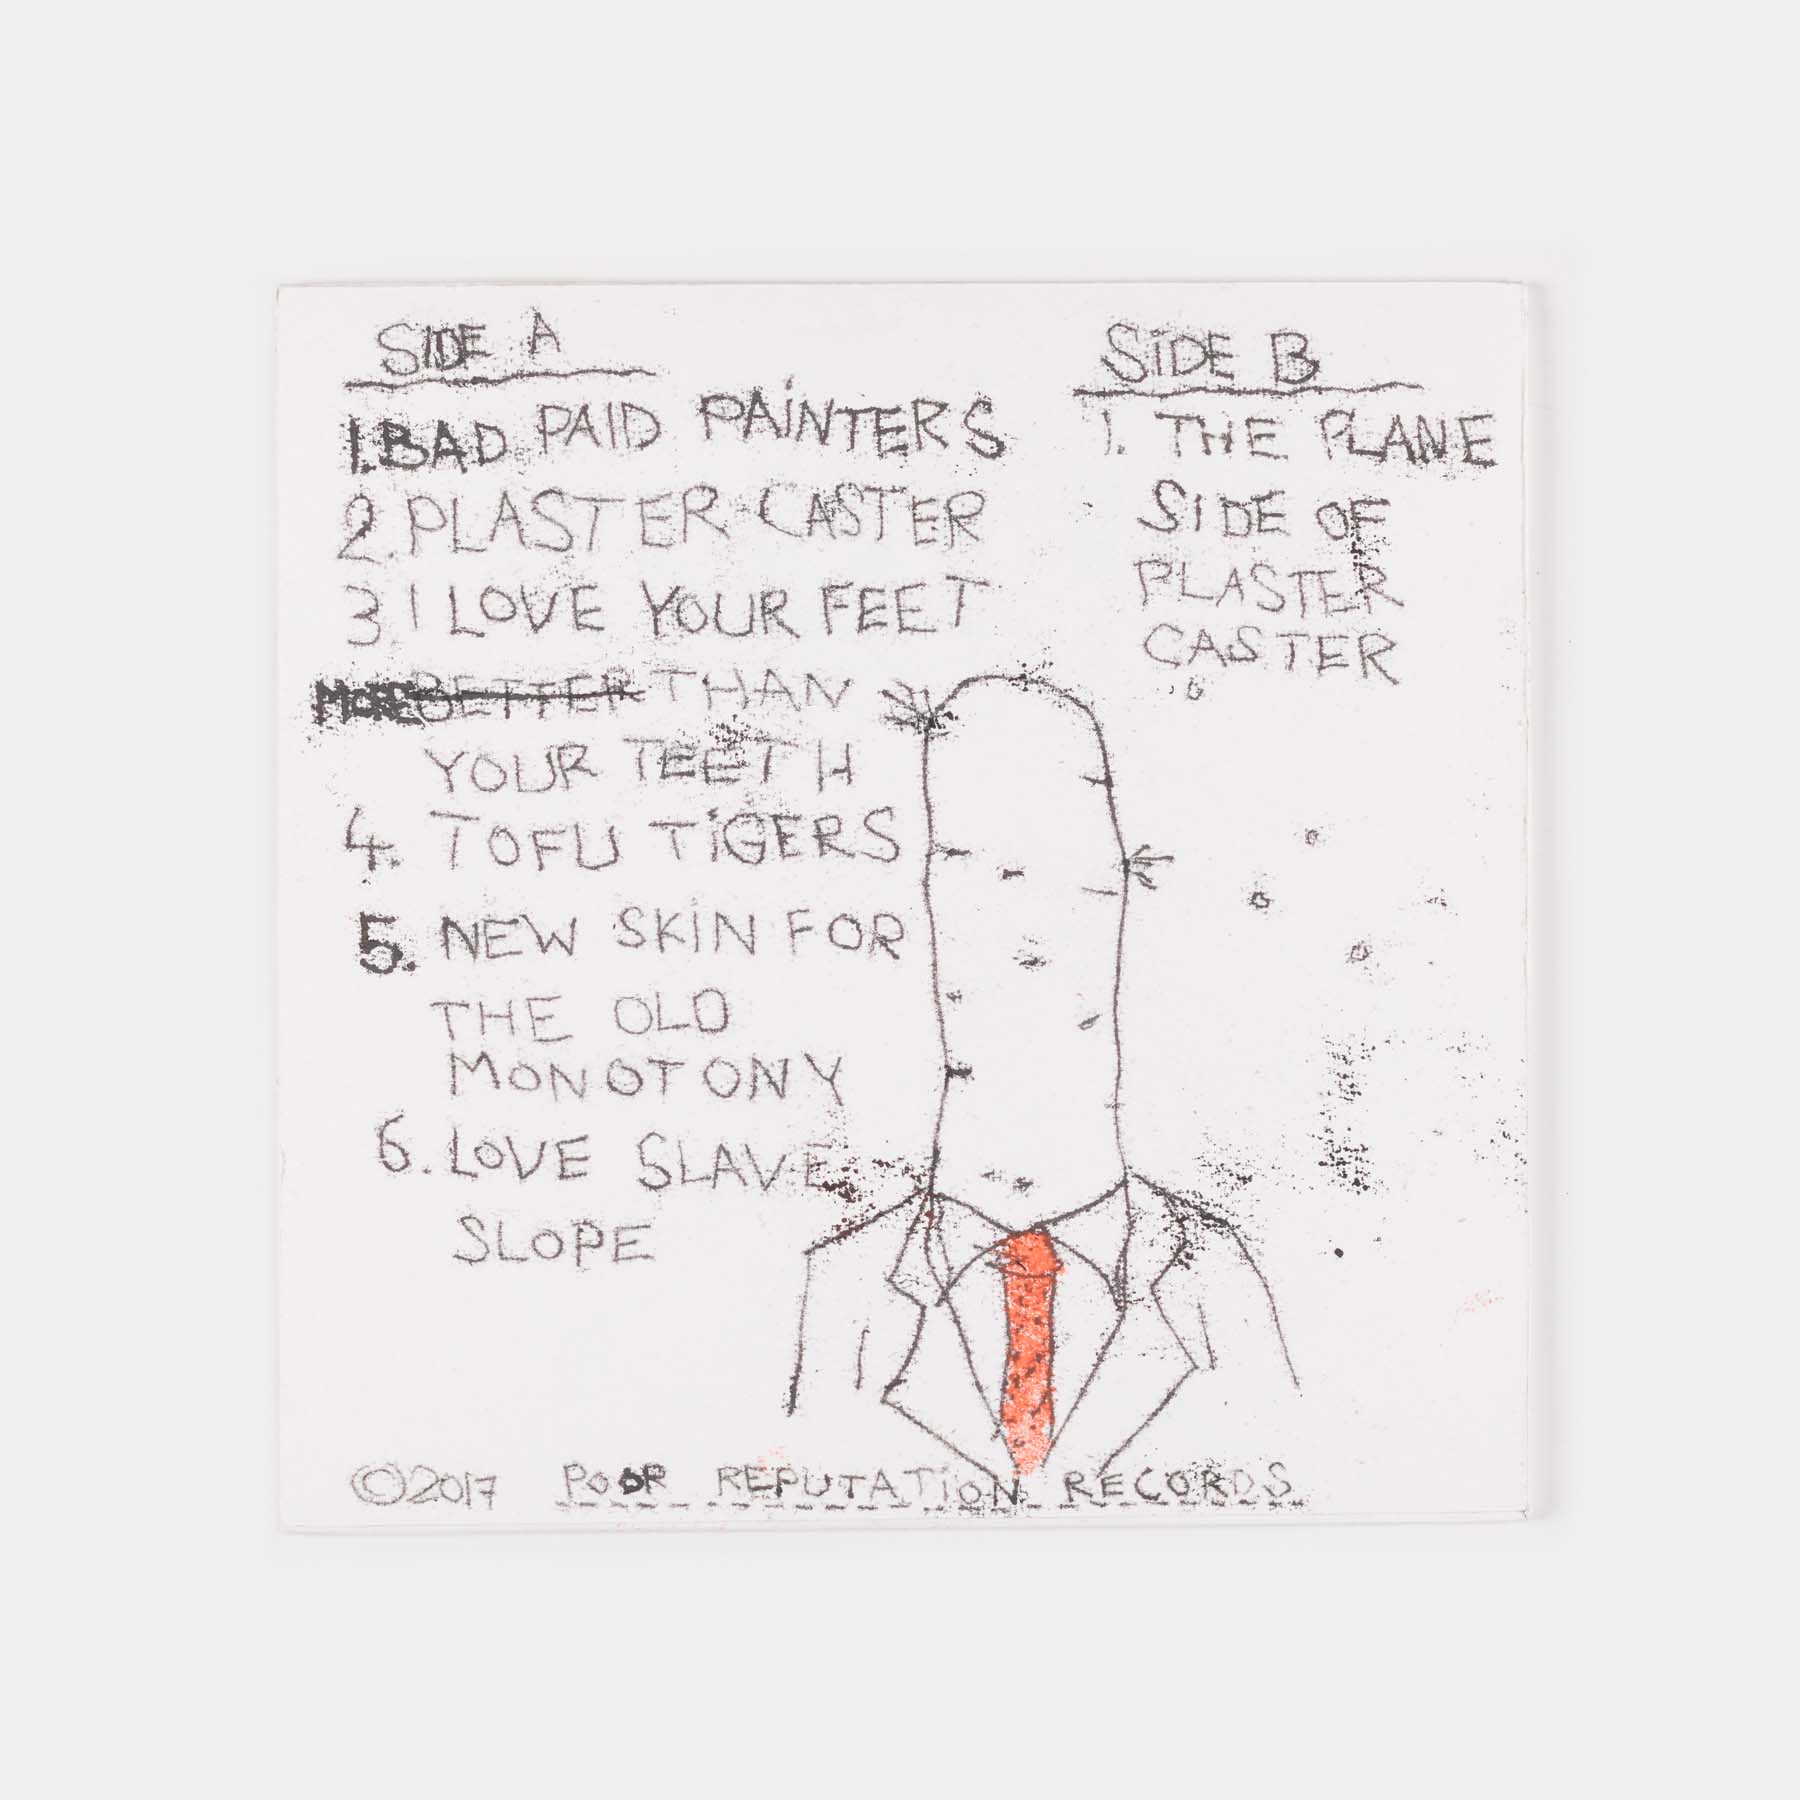 SIDE A
1. BAD PAID PAINTERS
2. PLASTER CASTER
3. I LOVE YOUR FEET
MORE BETTER THAN
YOUR TEETH
4. TOFU TIGERS
5. NEW SKIN FOR
THE OLD
MONOTONY
6. LOVE SLAVE
SLOPE
SIDE B
1. THE PLANE
SIDE OF
PLASTER
CASTER
©2017 POOR REPUTATION RECORDS